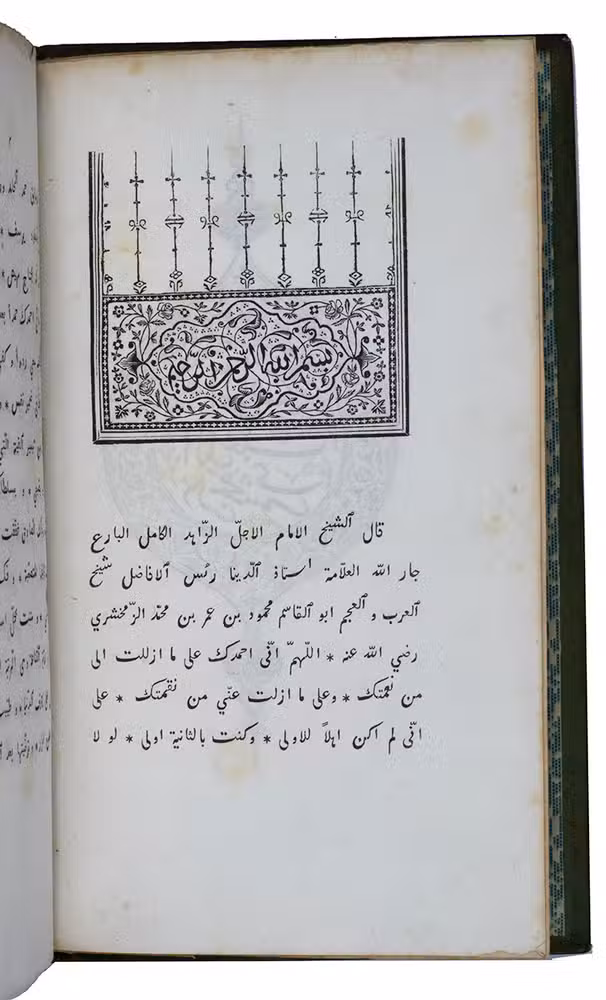 بسم الله الرحمن الرحيم
قال ٱلشيخ الامام الاجلّ الزّاهد الكامل البارع
جار الله العلّامة استاذ ٱلدّينا رئس ٱلافاضل شيخ
العرب و ٱلعجم ابو ٱلقاسم محمود بن عمر بن محمّد الزّمخشري
رضي الله عنه * اللّهمّ انّى احمدك على ما ازللت الى
من نعمتك * وعلى ما ازلت عنّي من نقمتك * على
انّى لم اكن اهلاً للاولى * وكنت بالثانية اولى * لو لا